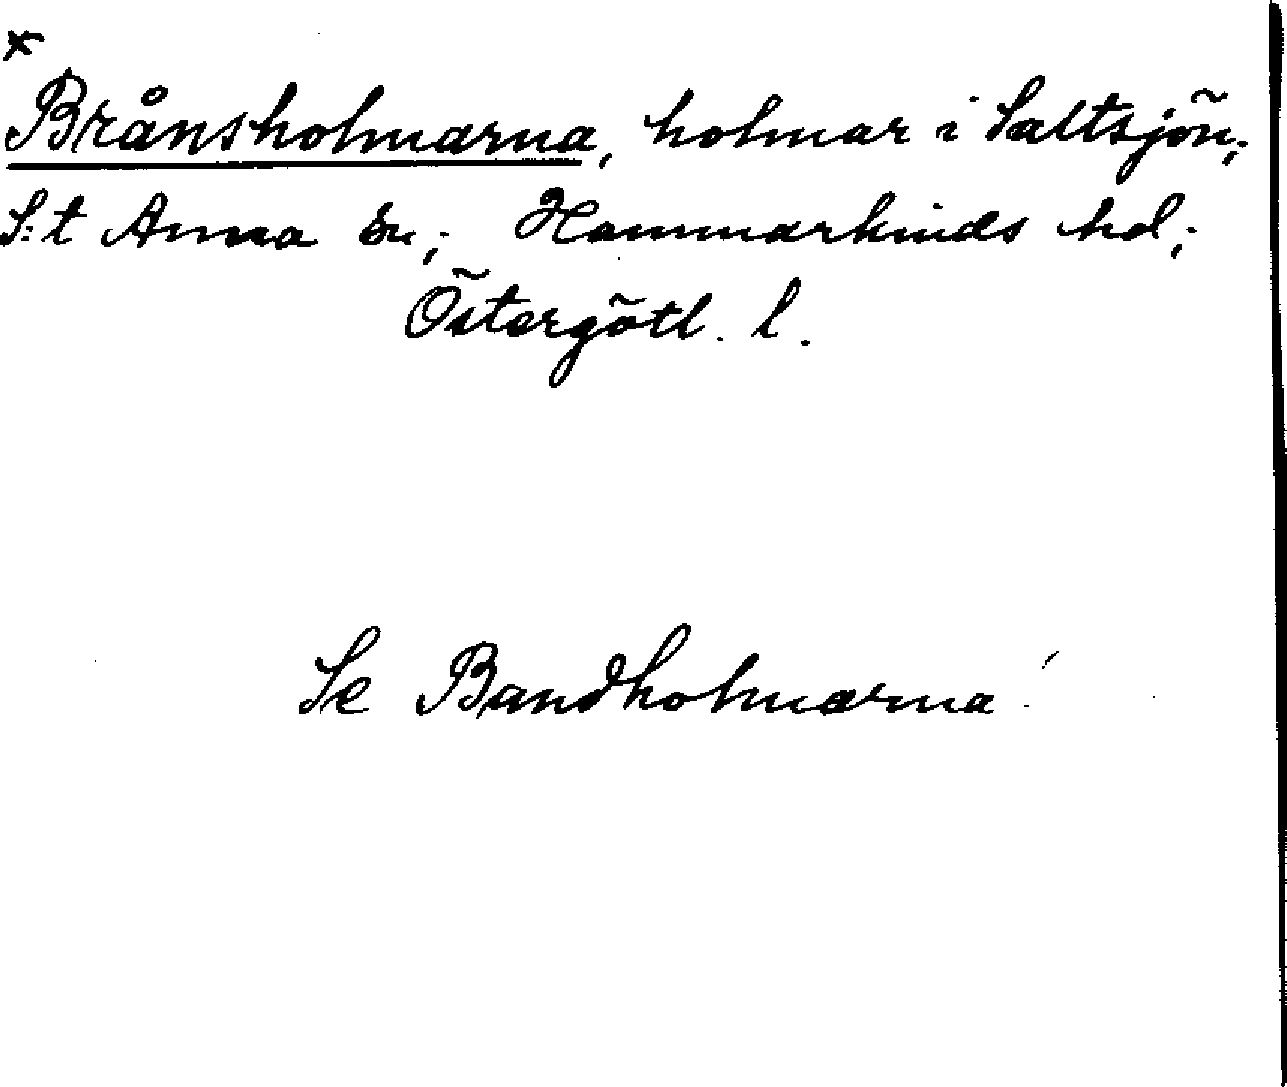 x
Brånsholmarna, holmar i Saltsjön;
S:t Anna sn; Hammarkinds hd;
Östergötl. l.
Se Bandholmarna!